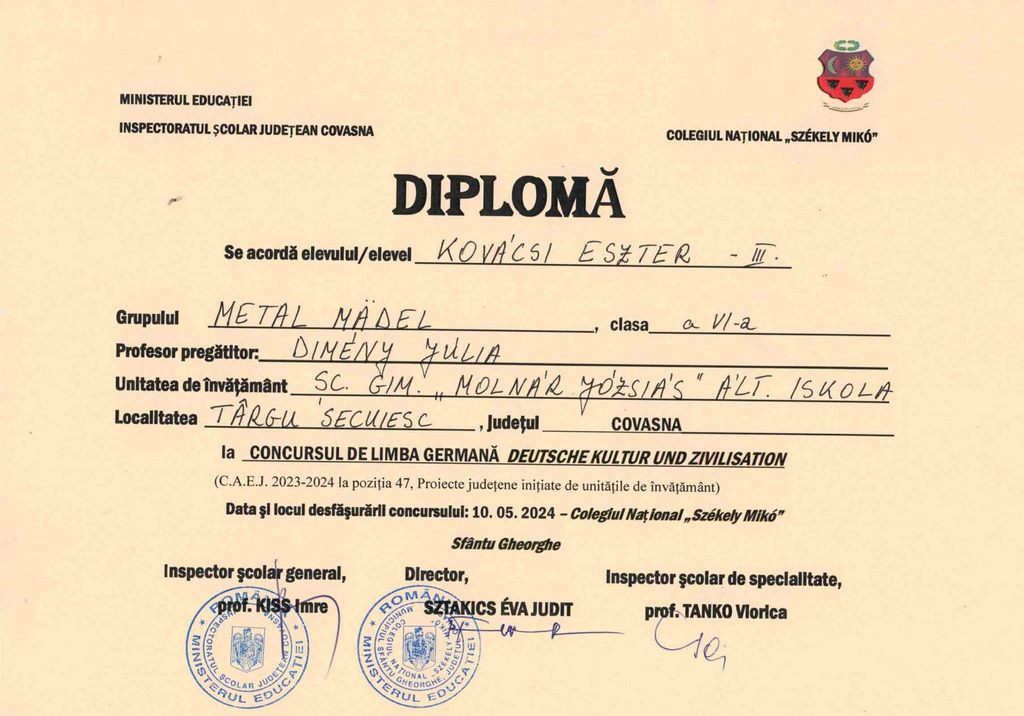 MINISTERUL EDUCAȚIEI
INSPECTORATUL ȘCOLAR JUDEȚEAN COVASNA
COLEGIUL NAȚIONAL „SZÉKELY MIKÓ”
DIPLOMĂ
Se acordă elevului/elevei KOVÁCSI ESZTER - III.
Grupulul METAL MÄDEL, clasa a VI-a
Profesor pregătitor: DIMÉNY JÚLIA
Unitatea de învățământ SC. GIM. „MOLNÁR JÓZSIÁS" ÁLT. ISKOLA
Localitatea TÂRGU SECUIESC, județul COVASNA
la CONCURSUL DE LIMBA GERMANĂ DEUTSCHE KULTUR UND ZIVILISATION
(C.A.E.J. 2023-2024 la poziția 47, Proiecte județene inițiate de unitățile de învățământ)
Data și locul desfășurării concursului: 10. 05. 2024 – Colegiul Național „Székely Mikó”
Sfântu Gheorghe
Inspector școlar general, Director, Inspector școlar de specialitate,
prof. KISS Imre SZTAKICS ÉVA JUDIT prof. TANKO Viorica
ROMÂNIA * MINISTERUL EDUCAȚIEI *
INSPECTORATUL ȘCOLAR JUDEȚEAN COVASNA
ROMÂNIA * MINISTERUL EDUCAȚIEI
COLEGIUL NAȚIONAL „SZÉKELY MIKÓ”
MUNICIPIUL SFÂNTU GHEORGHE, JUDEȚUL